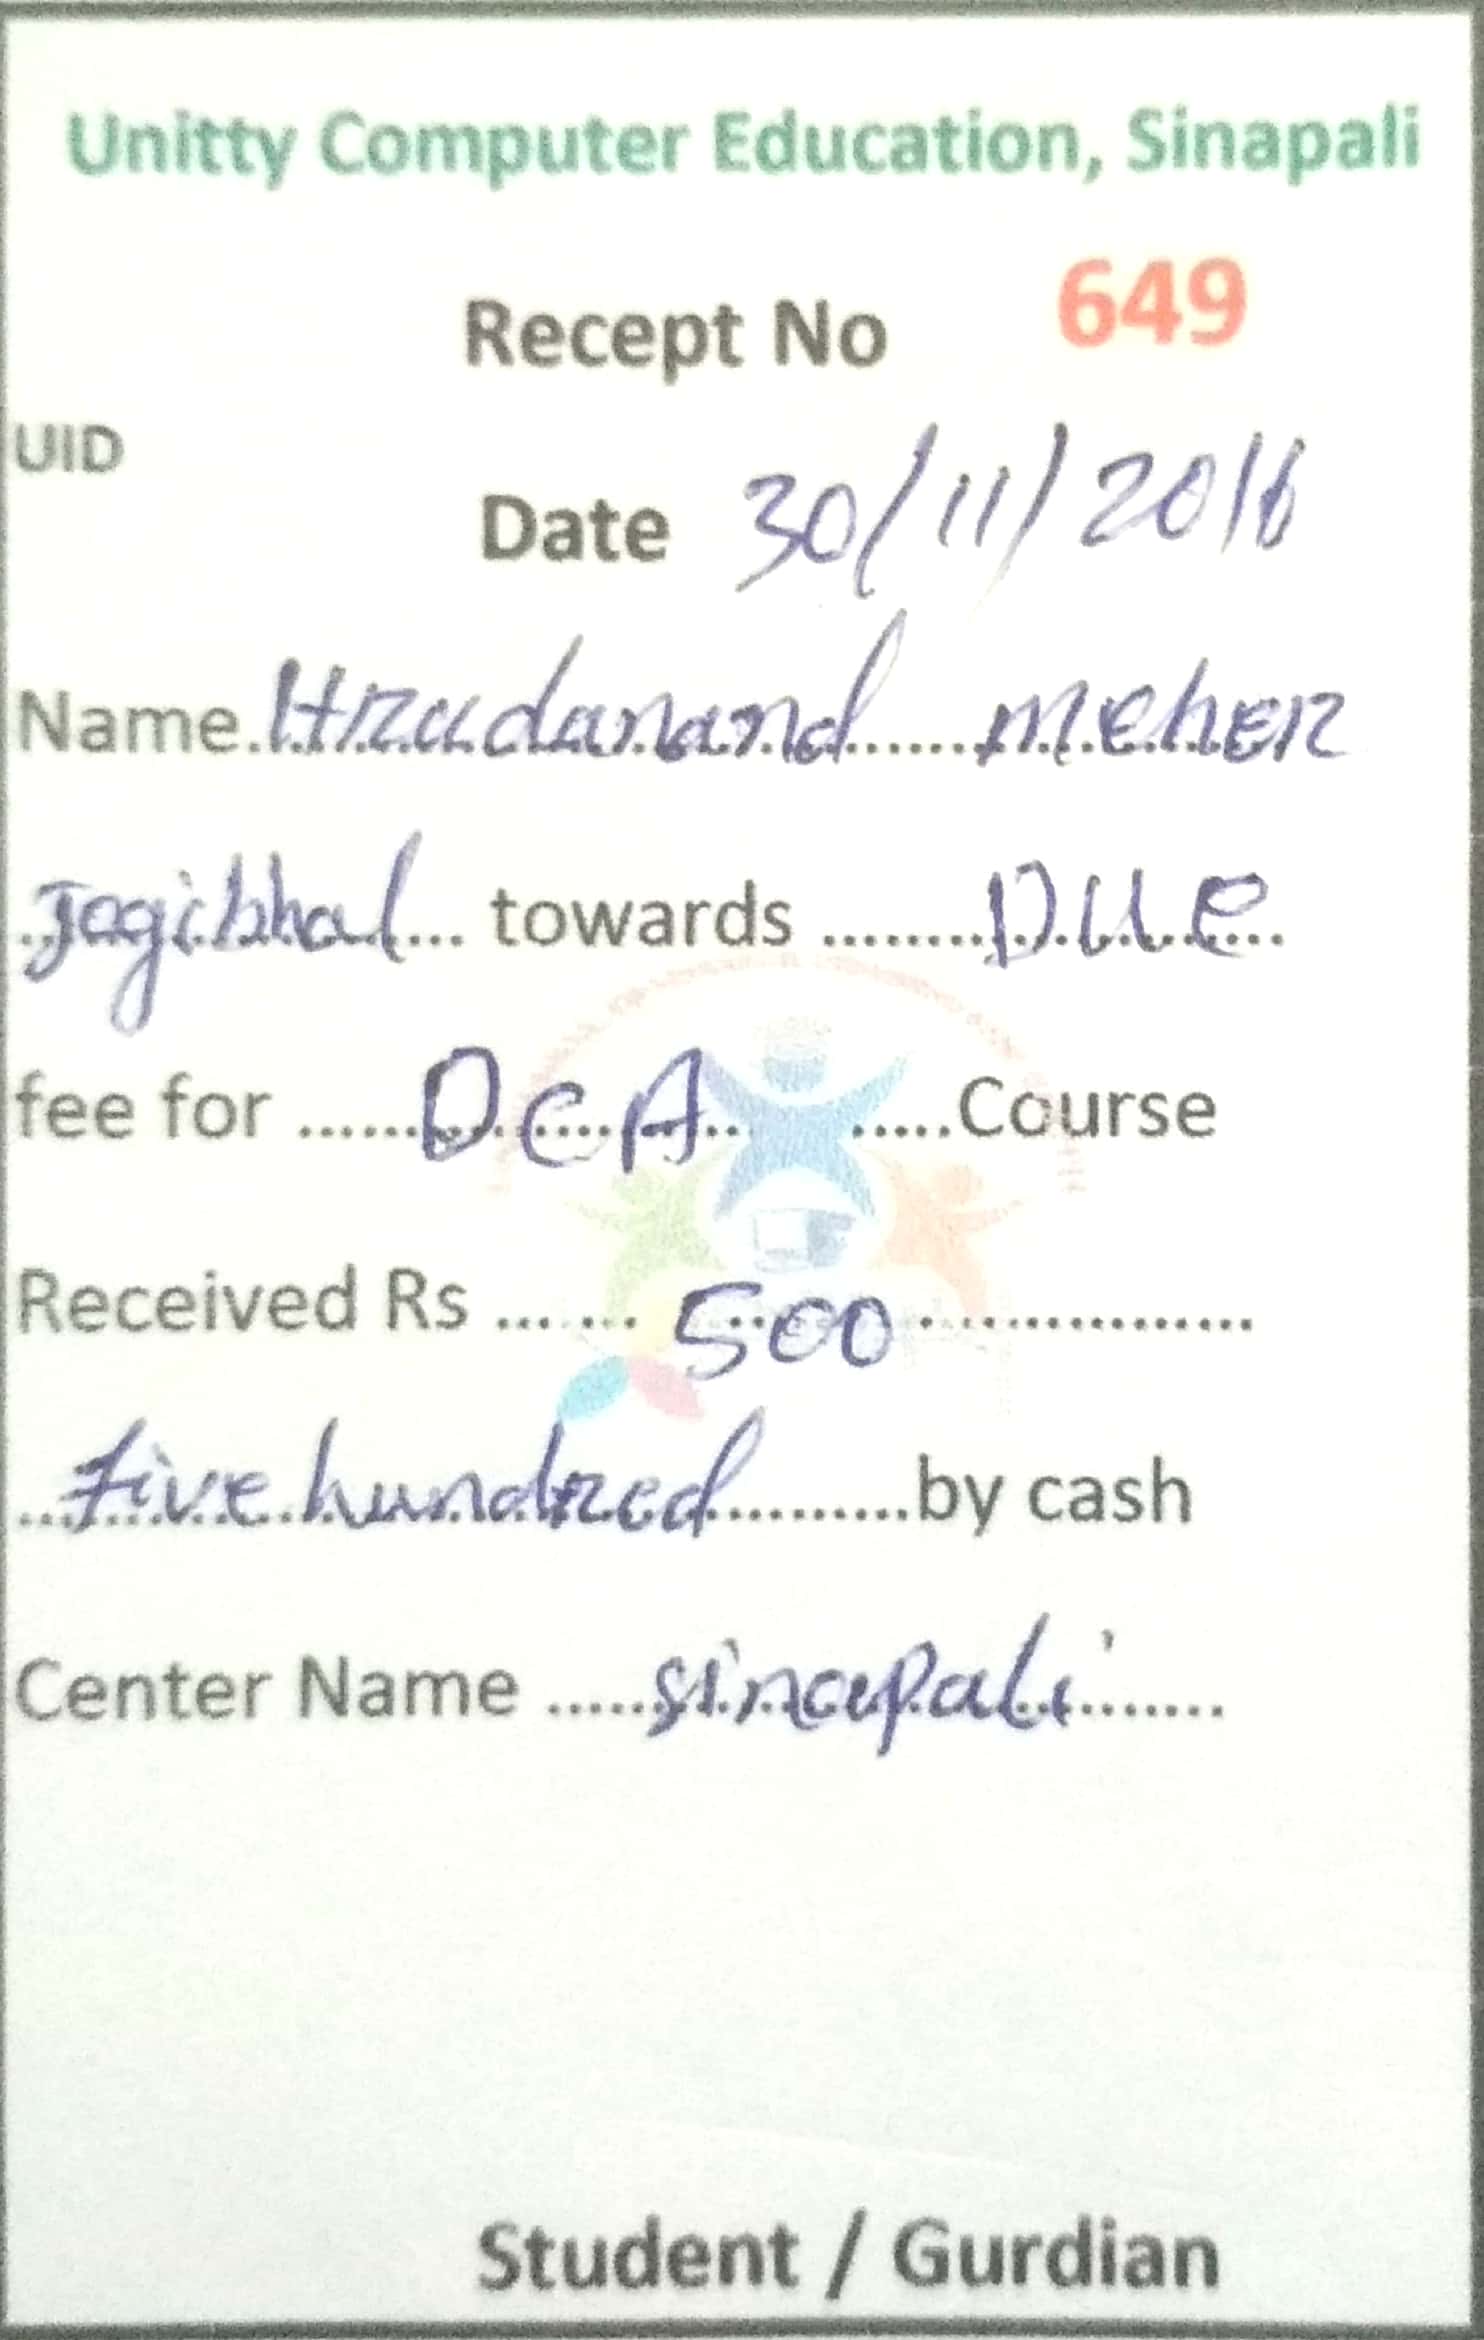 Unitty Computer Education, Sinapali
Recept No 649
UID
Date 30/11/2016
Name Hradanand meher
Jogibhal towards Due
fee for DCA Course
Received Rs 500
five hundred by cash
Center Name sinapali
Student / Gurdian